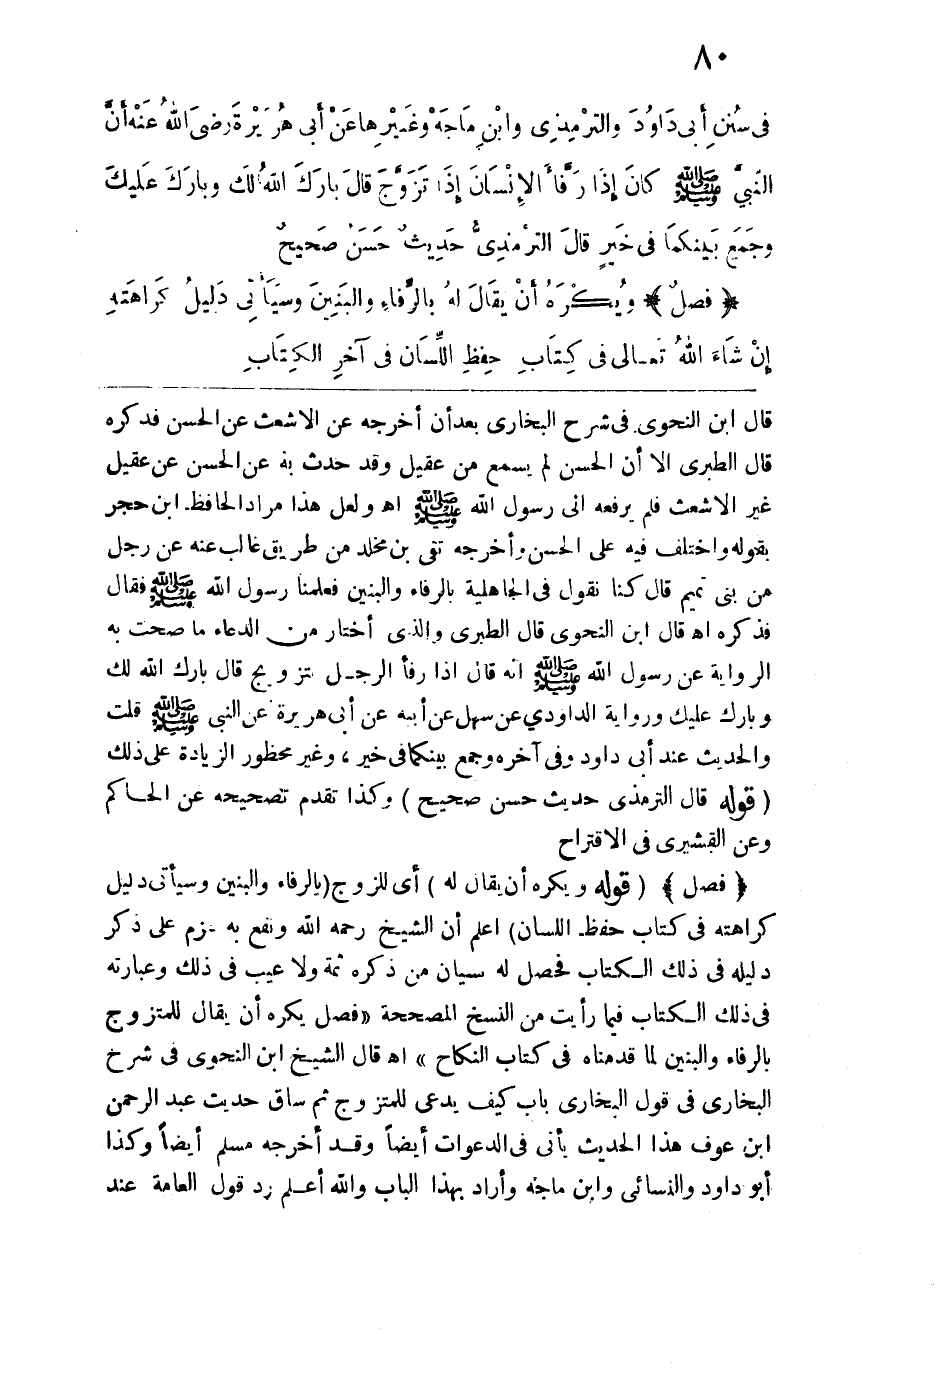 ٨٠
فى سُنَنِ أَبى دَاوُدَ والترْمِذِى وابْنِ مَاجَهْ وغَيْرِها عَنْ أَبى هُرَيْرةَ رضىَ اللهُ عَنْه أَنَّ
النَبيَّ ﷺ كانَ إِذَا رَفَّأَ الإِنْسَانَ إِذَا تَزَوَّجَ قالَ بارَكَ اللهُ لَكَ وبارَكَ عَليكَ
وجَمَعَ بَينكمَا فى خَيرٍ قالَ الترْمِذِىُّ حَدِيثٌ حَسَنٌ صَحيحٌ
﴿ فصلٌ ﴾ ويُكْرَهُ أَنْ يقالَ لهُ بالرِّفاءِ والبَنِينَ وسيَأْتى دَليلُ كَرَاهَتِهِ
إِنْ شَاءَ اللهُ تعـالى فى كِتابِ حِفظِ اللِّسَان فى آخرِ الكِتَابِ
قال ابن النحوى فى شرح البخارى بعد أن أخرجه عن الاشعث عن الحسن فذكره
قال الطبرى الا أن الحسن لم يسمع من عقيل وقد حدث به عن الحسن عن عقيل
غير الاشعث فلم يرفعه الى رسول الله ﷺ اه ولعل هذا مراد الحافظ ابن حجر
بقوله واختلف فيه على الحسن وأخرجه تقى بن مخلد من طريق غالب عنه عن رجل
من بنى تميم قال كنا نقول فى الجاهلية بالرفاء والبنين فعلمنا رسول الله ﷺ فقال
فذكره اه قال ابن النحوى قال الطبرى والذى أختار من الدعاء ما صحت به
الرواية عن رسول الله ﷺ انه قال اذا رفأ الرجـل بتزويج قال بارك الله لك
وبارك عليك ورواية الداودي عن سهل عن أبيه عن أبى هريرة عن النبى ﷺ قلت
والحديث عند أبى داود وفى آخره وجمع بينكما فى خير ، وغير محظور الزيادة على ذلك
( قوله قال الترمذى حديث حسن صحيح ) وكذا تقدم تصحيحه عن الحـاكم
وعن القشيرى فى الاقتراح
﴿ فصل ﴾ ( قوله ويكره أن يقال له ) أى للزوج (بالرفاء والبنين وسيأتى دليل
كراهته فى كتاب حفظ اللسان) اعلم أن الشيخ رحمه الله ونفع به عزم على ذكر
دليله فى ذلك الـكتاب فحصل له سيان من ذكره ثمة ولا عيب فى ذلك وعبارته
فى ذلك الـكتاب فيما رأيت من النسخ المصححة «فصل يكره أن يقال للمتزوج
بالرفاء والبنين لما قدمناه فى كتاب النكاح » اه قال الشيخ ابن النحوى فى شرح
البخارى فى قول البخارى باب كيف يدعى للمتزوج ثم ساق حديث عبد الرحمن
ابن عوف هذا الحديث يأتى فى الدعوات أيضاً وقـد أخرجه مسلم أيضاً وكذا
أبو داود والنسائى وابن ماجه وأراد بهذا الباب والله أعـلم رد قول العامة عند